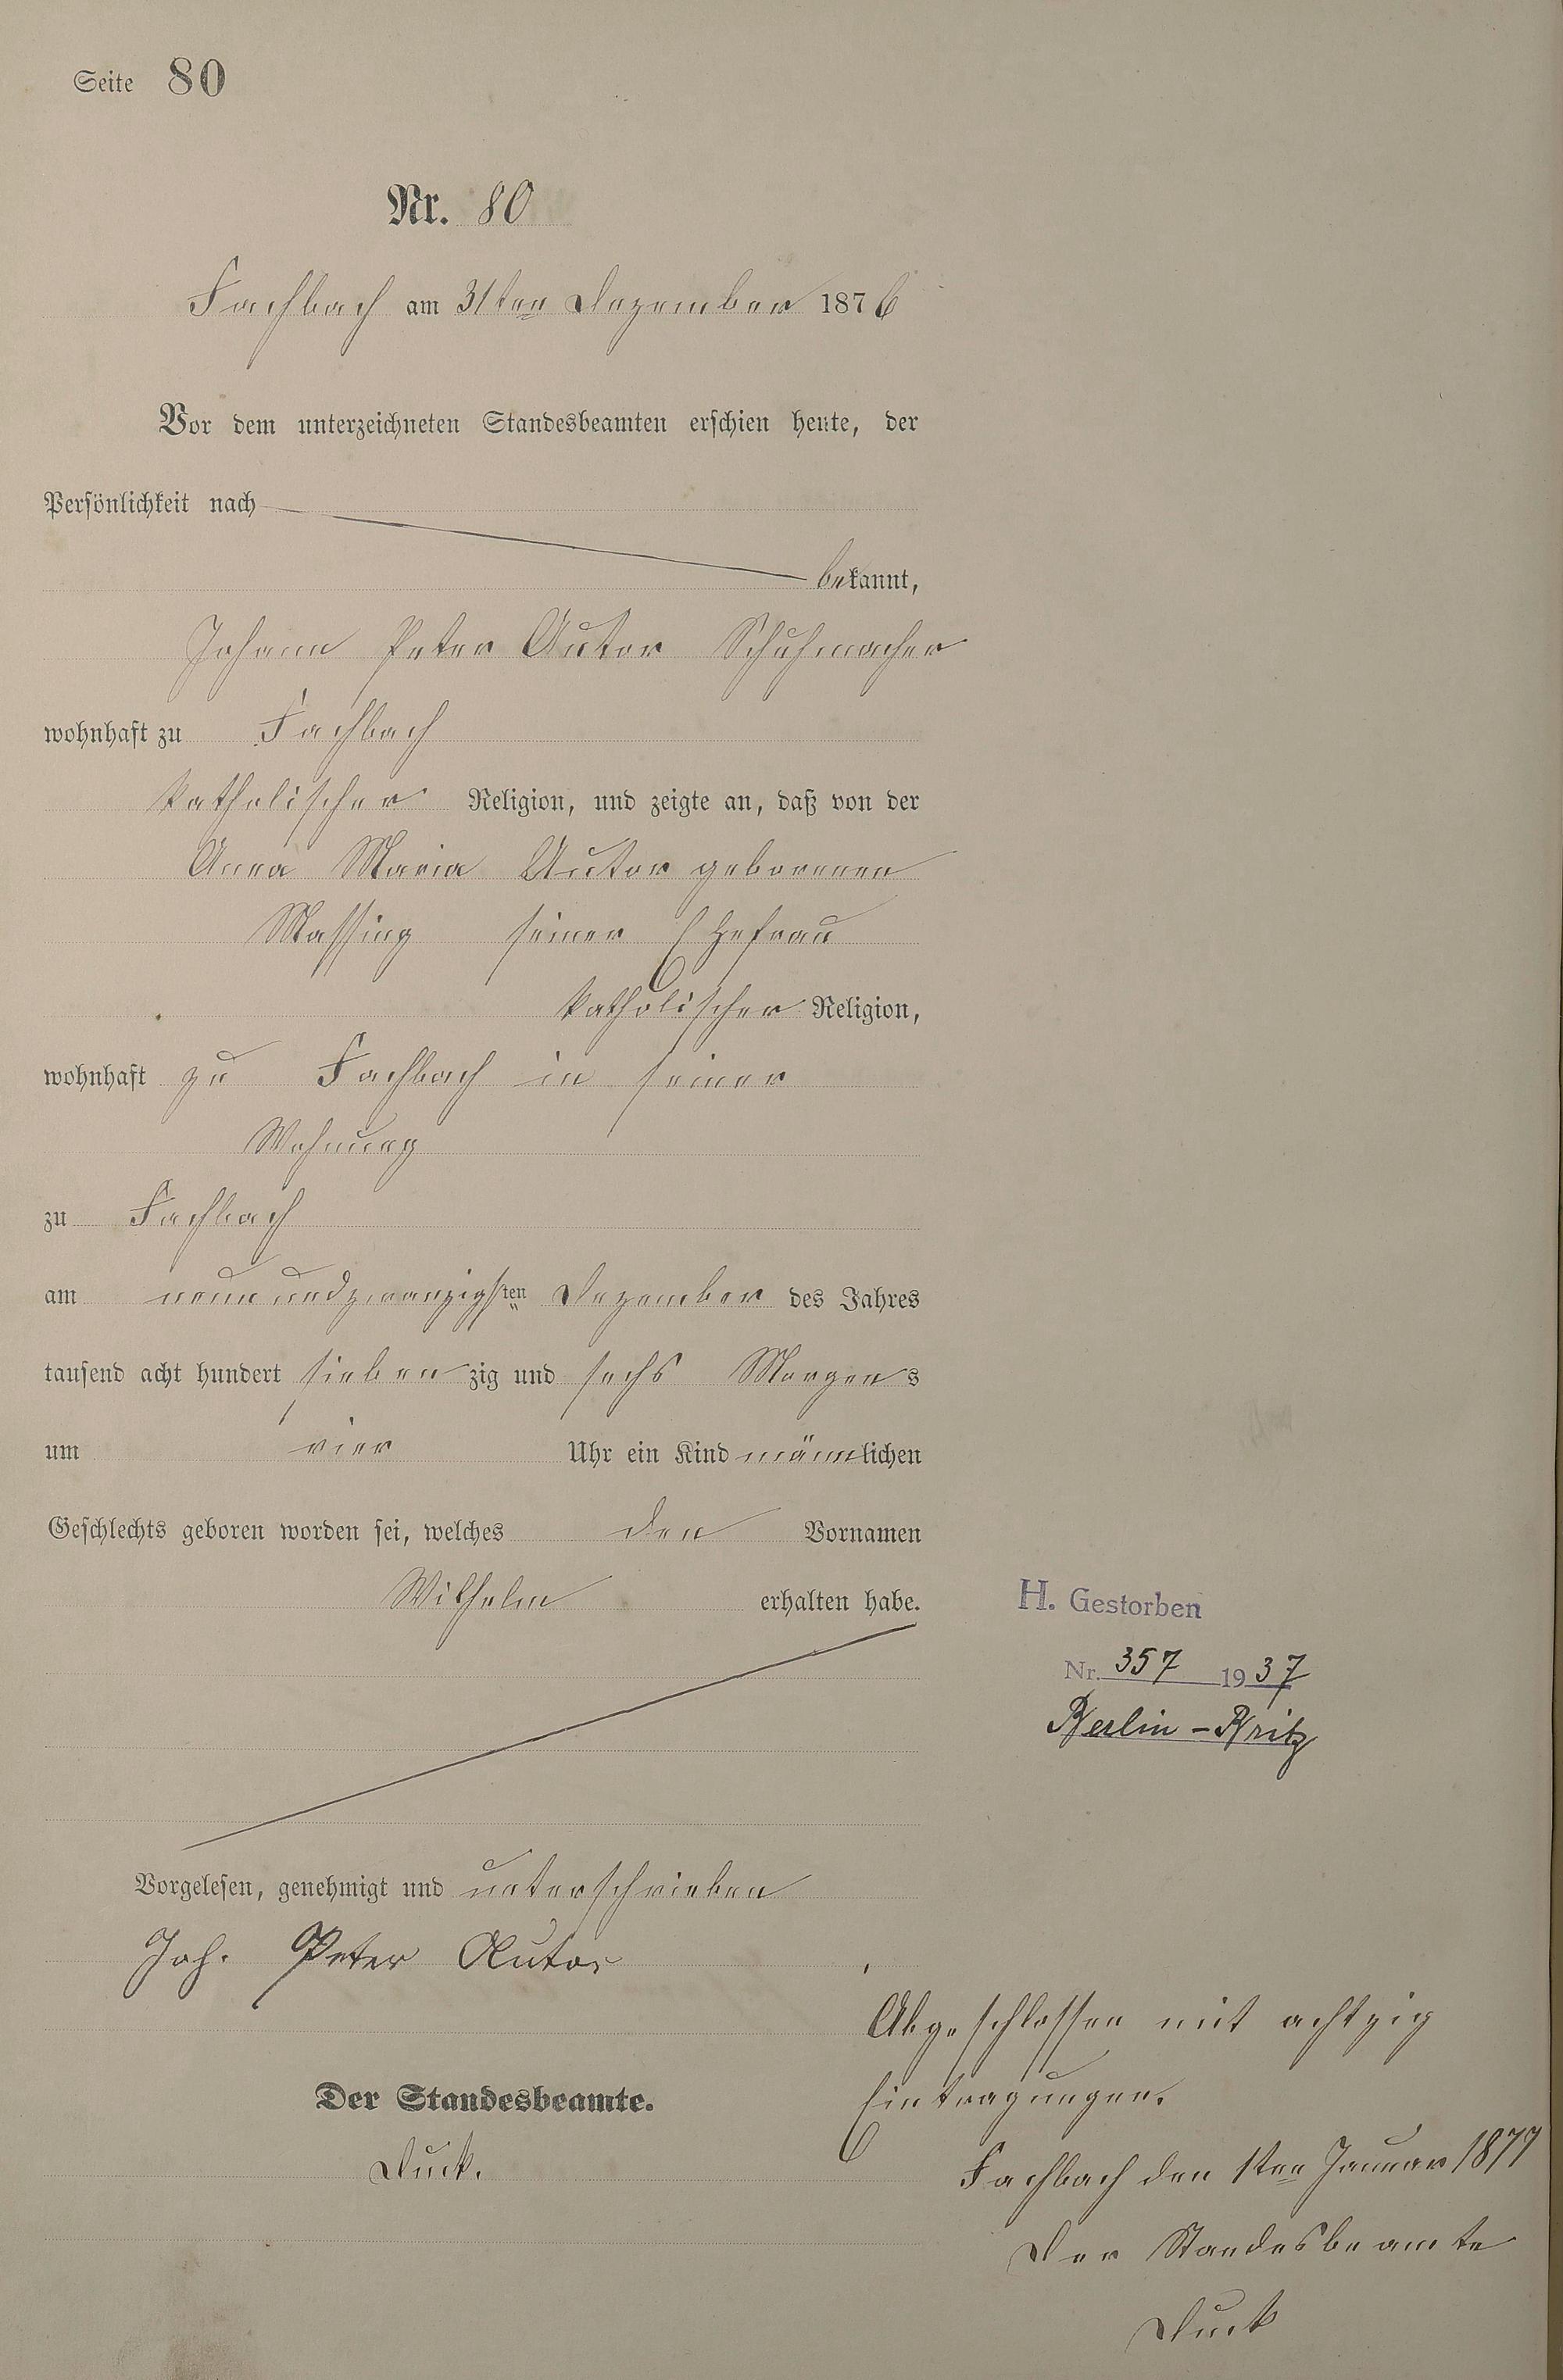 Seite 80
Nr. 80
Fachbach am 31ten Dezember 1876
Vor dem unterzeichneten Standesbeamten erschien heute, der
Persönlichkeit nach
bekannt,
Johann Peter Autor Schuhmacher
wohnhaft zu Fachbach
katholischer Religion, und zeigte an, daß von der
Anna Maria Autor geborenen
Massing seiner Ehefrau
katholischer Religion,
wohnhaft zu Fachbach in seiner
Wohnung
zu Fachbach
am neunundzwanzigsten Dezember des Jahres
tausend acht hundert siebenzig und sechs Morgens
um vier Uhr ein Kind männlichen
Geschlechts geboren worden sei, welches den Vornamen
Wilhelm erhalten habe.
H. Gestorben
Nr. 357 1937
Berlin-Britz
Vorgelesen, genehmigt und unterschrieben
Joh. Peter Autor
Der Standesbeamte.
Duck.
Abgeschlossen mit achtzig
Eintragungen.
Fachbach den 1ten Januar 1877
Der Standesbeamte
Duck